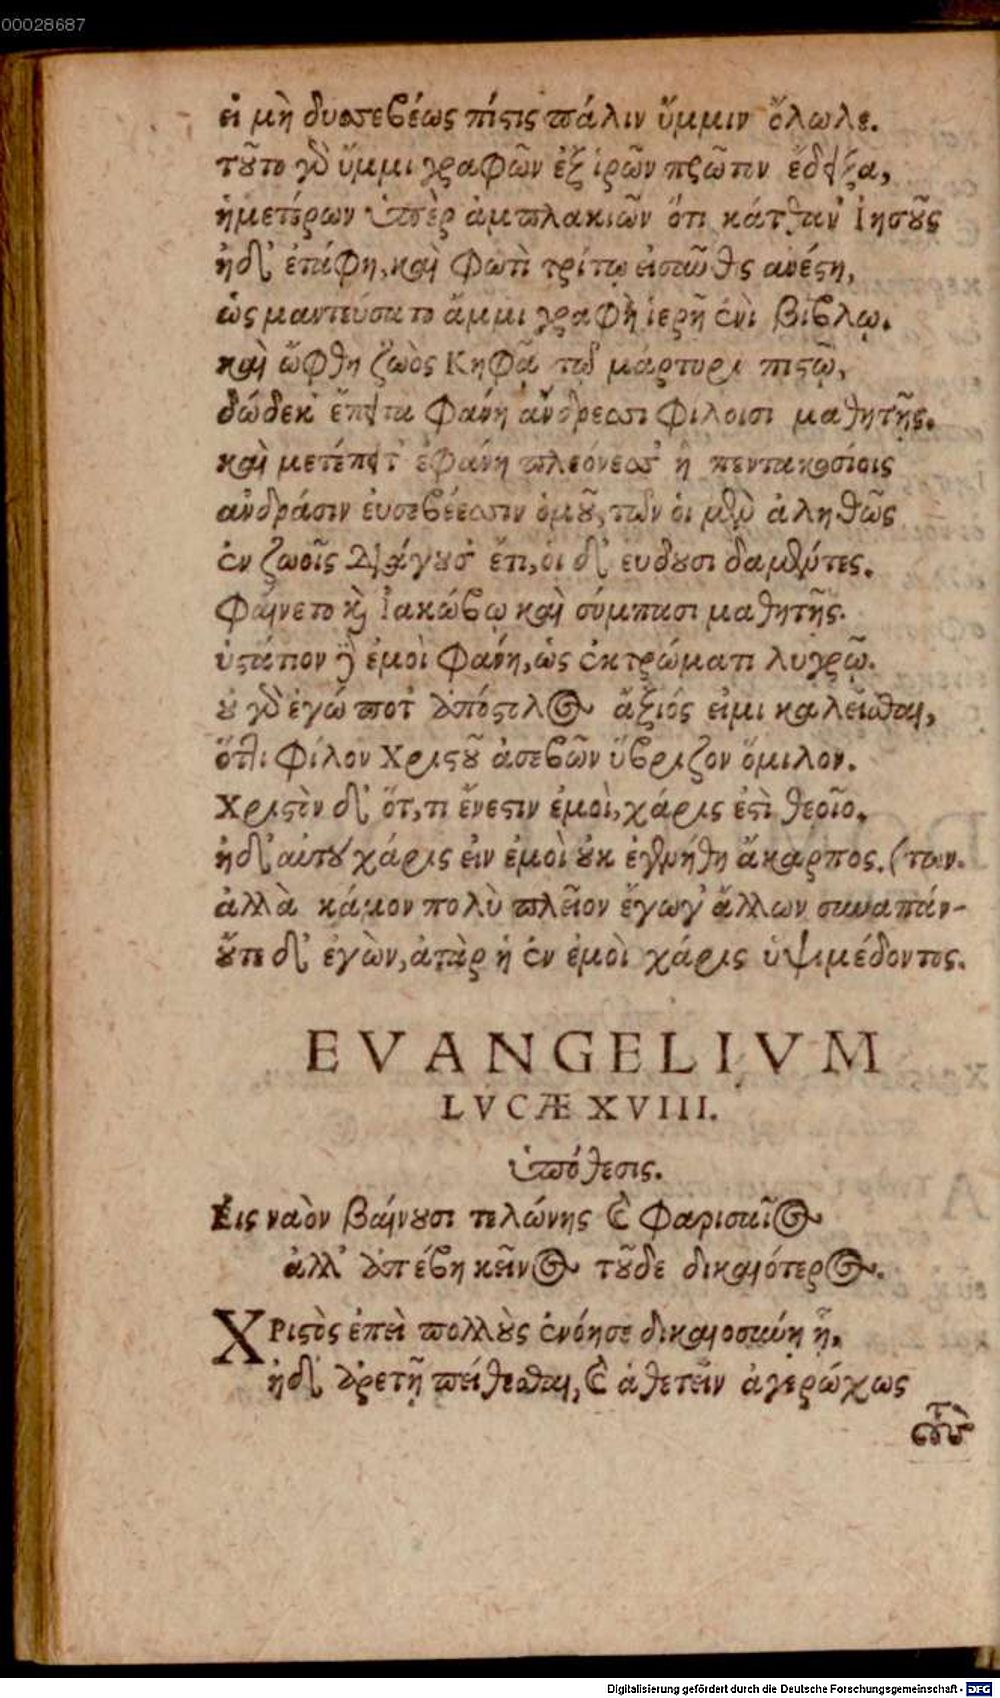 00028687
εἰ μὴ δυσσεβέως πίστις πάλιν ὔμμιν ὄλωλε.
τοῦτο γὰρ ὔμμι γραφῶν ἐξ ἱρῶν πρῶτιν ἔδειξα,
ἡμετέρων ὑπὲρ ἀμπλακιῶν ὅτι κάτθαν' Ἰησοῦς
ἠδ' ἐτάφη, καὶ φωτὶ τρίτῳ αὖθις ἀνέστη,
ὡς μαντεύσατο ἄμμι γραφὴ ἱερῇ ἐνὶ βίβλῳ.
καὶ ὤφθη ζωὸς Κηφᾷ τῷ μάρτυρι πιστῷ,
δώδεκ' ἔπειτα φάνη ἄνδρεσσι φίλοισι μαθητῇς.
καὶ μετέπειτ' ἐφάνη πλεόνεσσ' ἢ πεντακοσίοις
ἀνδράσιν εὐσεβέεσσιν ὁμοῦ, τῶν οἱ μὲν ἀληθῶς
ἐν ζωοῖς διάγουσ' ἔτι, οἱ δ' εὕδουσι δαμέντες.
Φαίνετο καὶ Ἰακώβῳ καὶ σύμπασι μαθητῇς.
ὑστάτιον δ' ἐμοὶ φάνη, ὡς ἐκτρώματι λυγρῷ.
οὐ γὰρ ἐγώ ποτ' ἀπόστολος ἄξιός εἰμι καλεῖσθαι,
ὅττι φίλον Χριστοῦ ἀσεβῶν ὕβριζον ὅμιλον.
Χριστὸν δ' ὅτ,τι ἔνεστιν ἐμοὶ, χάρις ἐστὶ θεοῖο.
ἠδ' αὐτοῦ χάρις εἰν ἐμοὶ οὐκ ἐγενήθη ἄκαρπος. (των.
ἀλλὰ κάμον πολὺ πλεῖον ἔγωγ' ἄλλων συναπάν-
οὔτι δ' ἐγὼν, ἀτὰρ ἡ ἐν ἐμοὶ χάρις ὑψιμέδοντος.
EVANGELIVM
LVCÆ XVIII.
ὑπόθεσις.
Εἰς ναὸν βαίνουσι τελώνης καὶ Φαρισαῖος
ἀλλ' ἀπέβη κεῖνος τοῦδε δικαιότερος.
ΧΡιστὸς ἐπεὶ πολλοὺς ἐνόησε δικαιοσύνῃ ᾗ,
ἠδ' ἀρετῇ πείθεσθαι, καὶ ἀθετεῖν ἀγερώχως
Digitalisierung gefördert durch die Deutsche Forschungsgemeinschaft - DFG